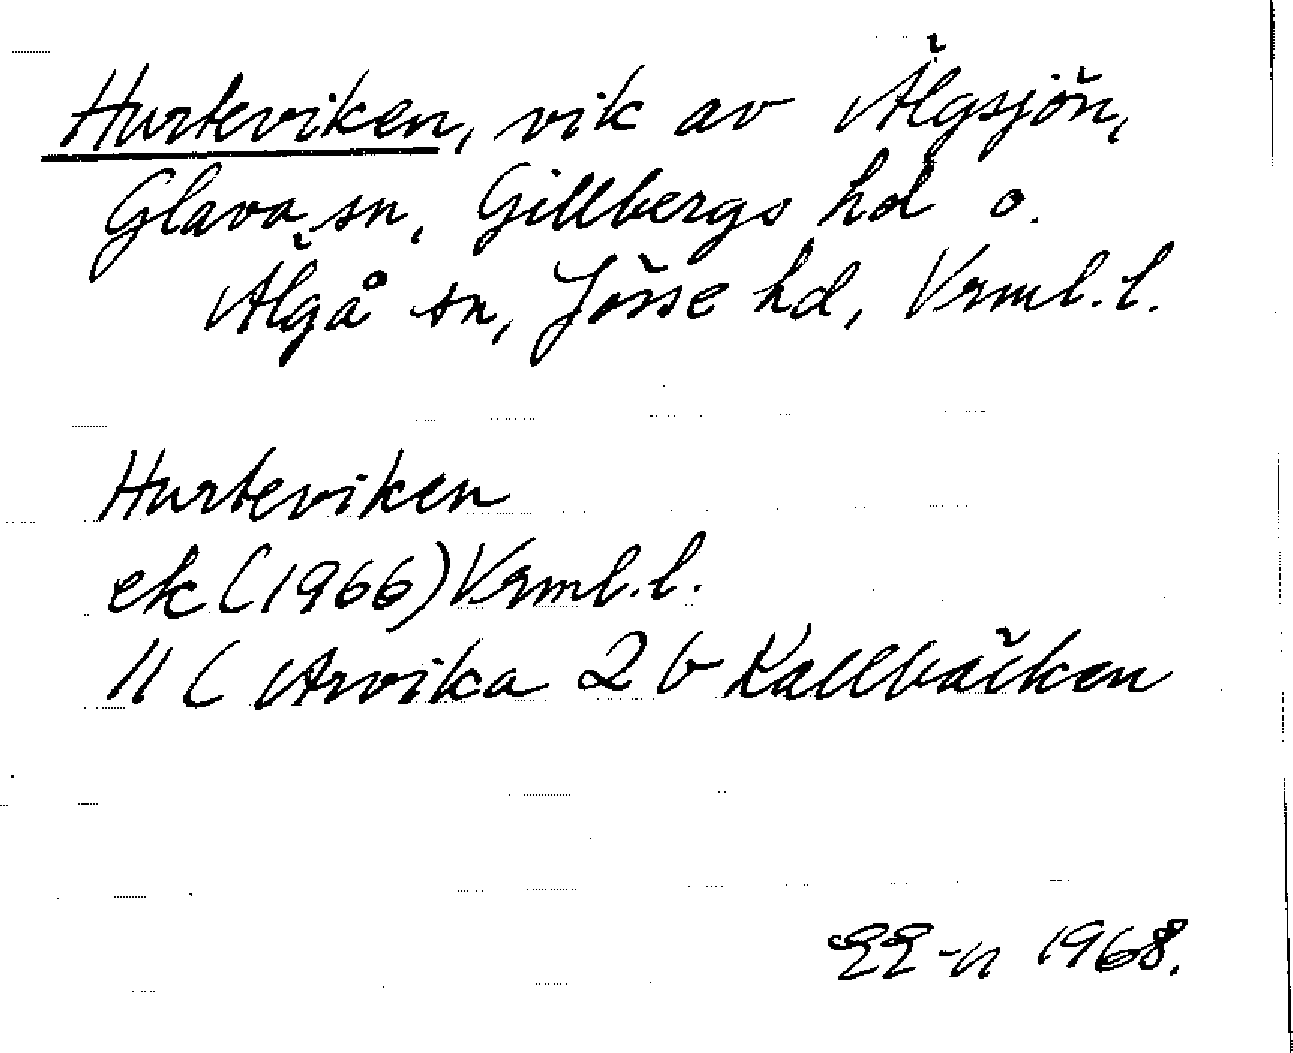 Hurteviken, vik av Älgsjön,
Glava sn, Gillbergs hd o.
Älgå sn, Jösse hd, Vrml. l.
Hurteviken
ek (1966) Vrml. l.
11 C Arvika 2 b Kallbäcken
EE-n 1968.